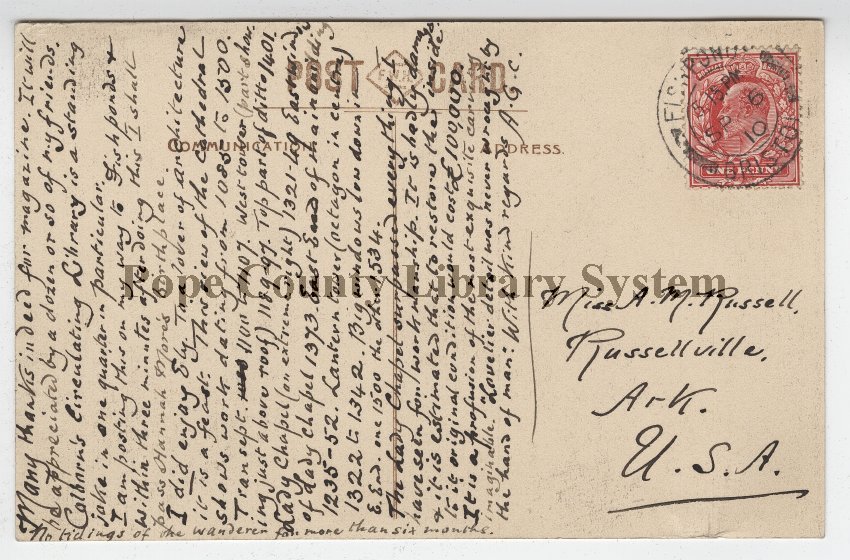 POST CARD
COMMUNICATION.
ADDRESS.
Many thanks indeed for magazine. It will
be appreciated by a dozen or so of my friends.
Calborn's Circulating Library is a standing
joke in one quarter in particular.
I am posting this on my way to Fishponds &
within three minutes of so doing this I shall
pass Hannah More's birthplace.
I did enjoy Ely. To the lover of architecture
it is a feast. This view of the Cathedral
shows work dating from 1083 to 1500.
Transept. 1101 to 1107. West tower (part show-
ing just above roof) 1189-97. Top part of ditto 1401.
Lady Chapel (on extreme right) 1321-49 East wind.
of Lady Chapel 1373 East End of main building
1235-52. Lantern tower (octagon in centre)
1322 to 1342. Big windows low down in
E. End. one 1500 the other 1534.
The Lady Chapel surpassed everything I
have seen for workmanship. It is badly damaged
& it is estimated that to restore the inside
to it original condition would cost £100,000.
It is a profusion of the most exquisite carving
imaginable. "Lovelier detail was never wrought by
the hand of man". With kind regards A.G.C.
No tidings of the wanderer for more than six months.
ONE PENNY
FISHPONDS
BRISTOL
SP 6
10
Miss A. M. Russell,
Russellville,
Ark.
U.S.A.
Pope County Library System